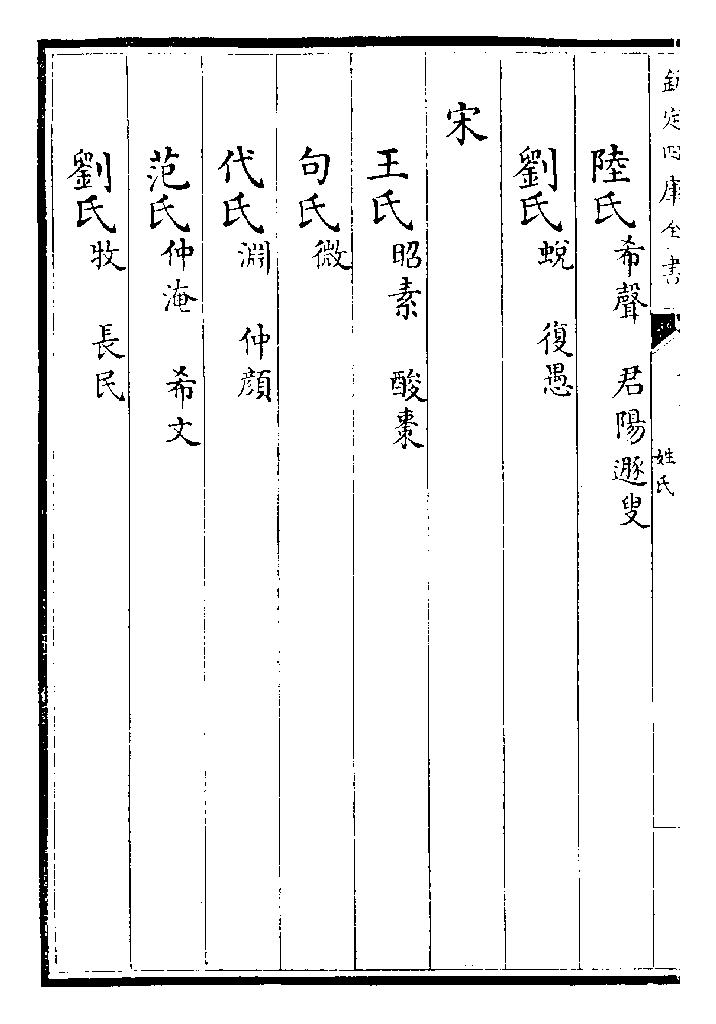 欽定四庫全書
姓氏
陸氏希聲　君陽遯叟
劉氏蛻　復愚
宋
王氏昭素　酸棗
句氏微
代氏淵　仲顔
范氏仲淹　希文
劉氏牧　長民